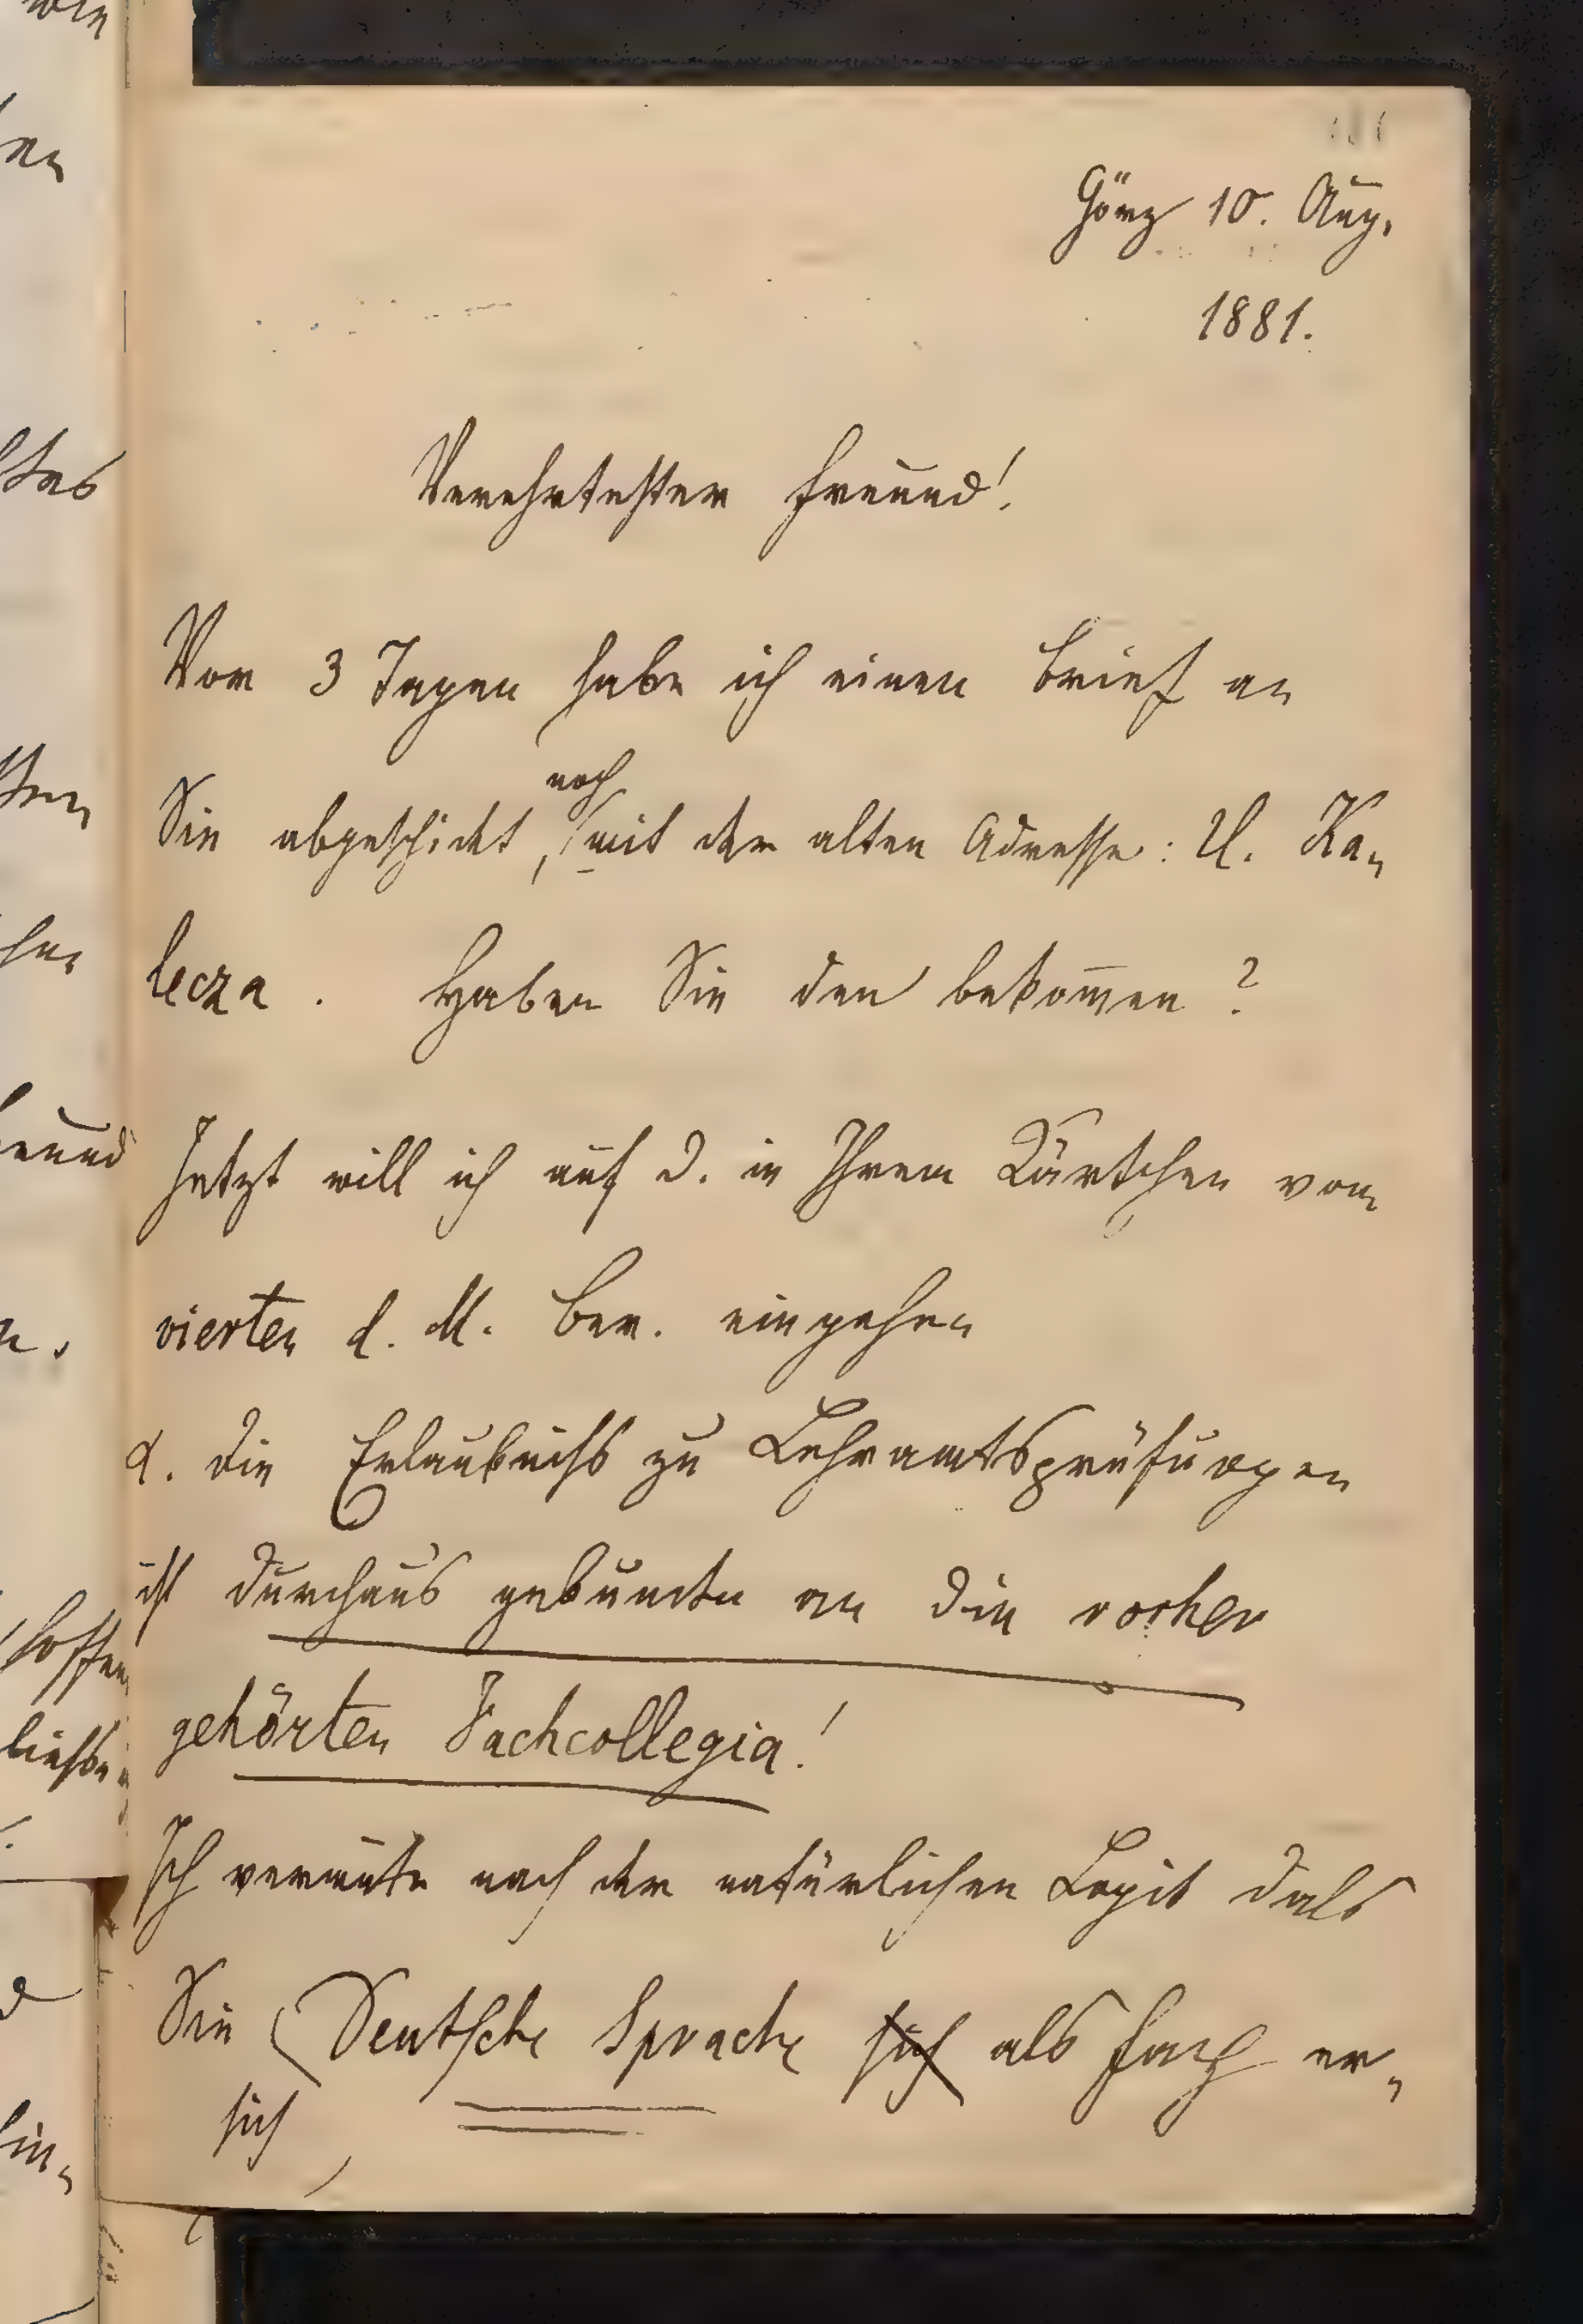 Görz 10. Aug.
1881.
Verehrtester Freund!
Vor 3 Tagen habe ich einen Brief an
noch
Sie abgeschickt, mit der alten Adresse: U. Ka-
lecza. Haben Sie den bekom̄en?
Jetzt will ich auf d. in Ihrem Kärtchen vom
vierten d. M. Ber. eingehen
d. die Erlaubniss zu Lehramtsprüfungen
ist durchaus gebunden an die vorher
gehörten Fachcollegia!
Ich vermute nach der natürlichen Logik dass
Sie Deutsche Sprache sich als Fach er-
sich